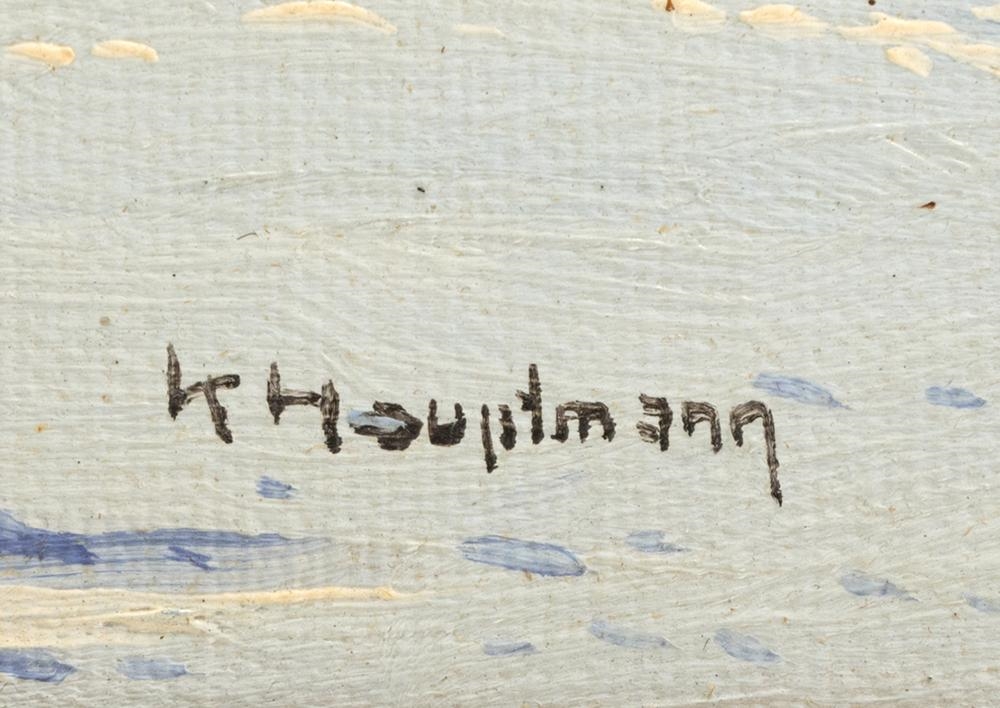 K Hauptmann